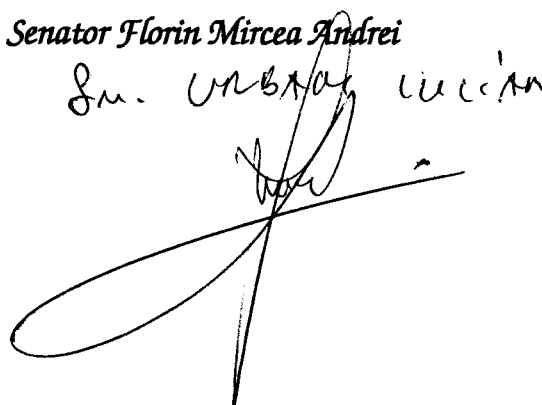 Senator Florin Mircea Andrei
Sn. URBAN LUCIAN